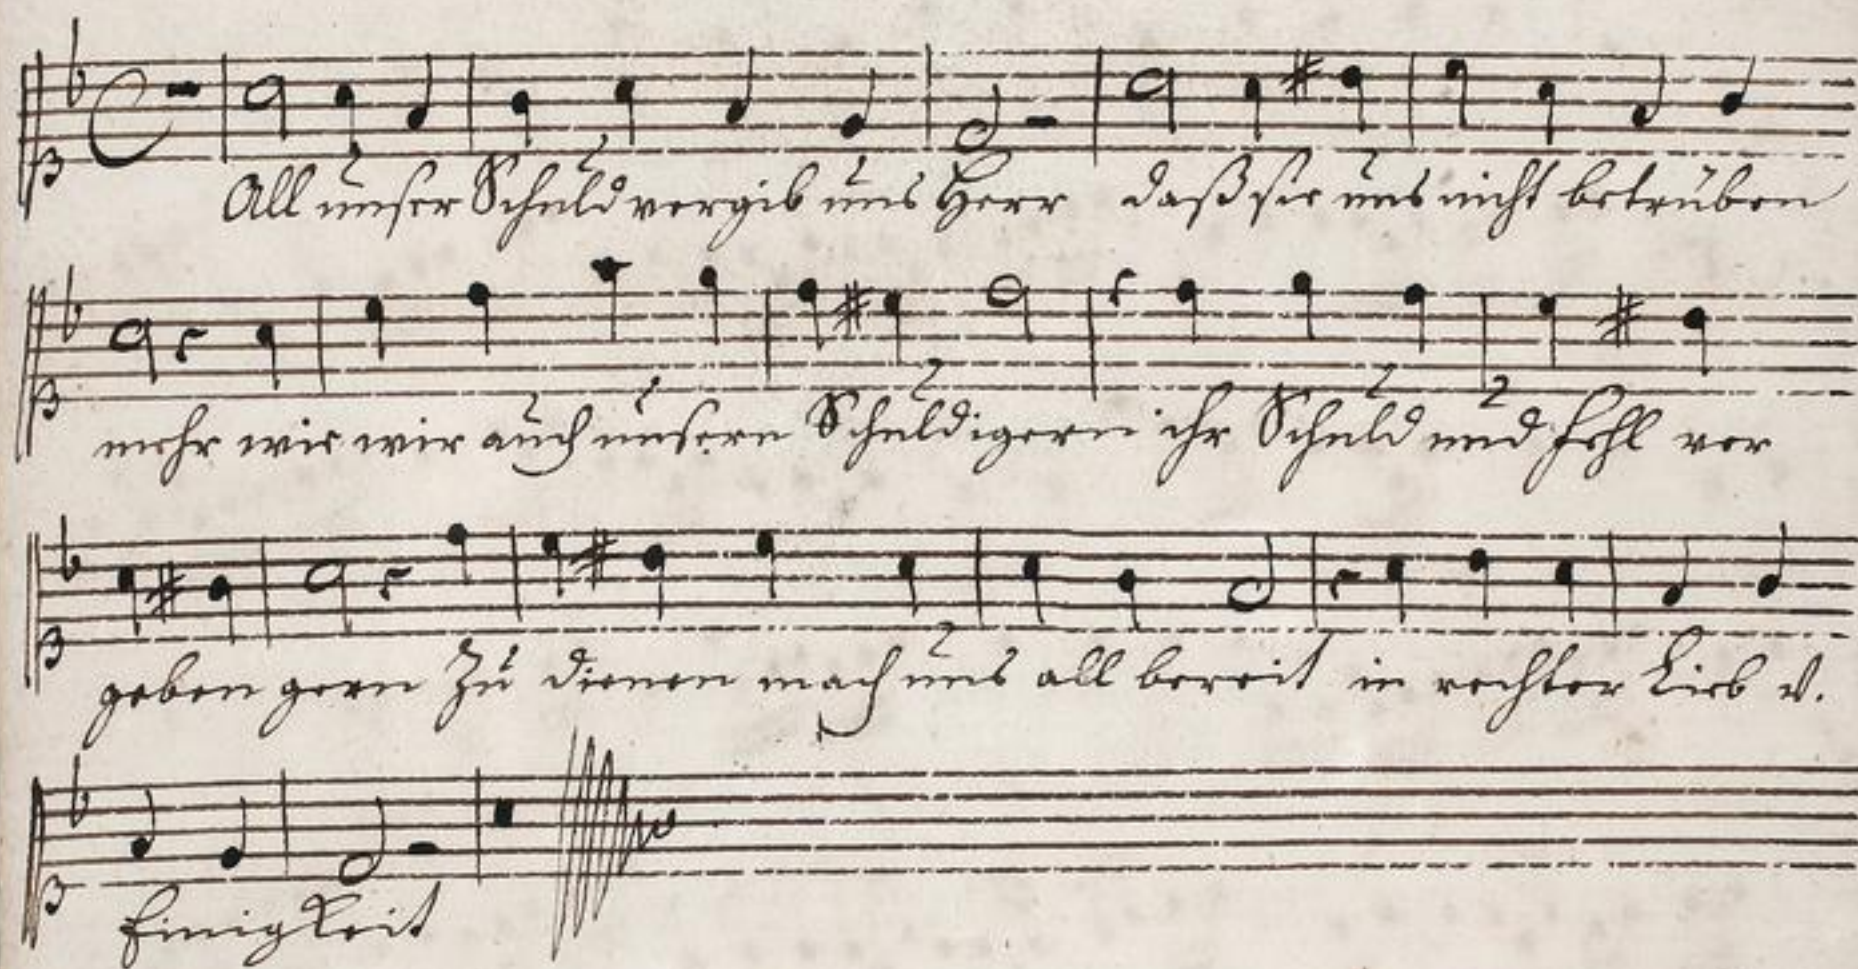 All unser Schuld vergib uns Herr daß sie uns nicht betrüben
mehr wie wir auch unsern Schuldigern ihr Schuld und Fehl ver
geben gern Zu dienen mach uns all bereit in rechter Lieb v.
Einigkeit